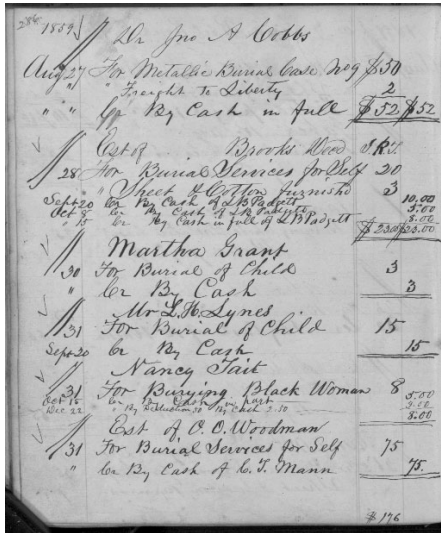 286
1859
Dr Jno A Cobbs
Aug 27 For Metallic Burial Case No 9 $50
" " " Freight to Liberty 2
" " Cr By Cash in full $52 $52
Est of Brooks Wood
28 For Burial Services for Self 20
" Sheet of Cotton furnishd 3
Sept 20 Cr By Cash of L B Padgett 10.00
Oct 8 Cr By Cash of L B Padgett 5.00
" 15 Cr By Cash in full of L B Padgett 8.00
$23.00 $23.00
Martha Grant
30 For Burial of Child 3
" Cr By Cash 3
Mr L. H. Lynes
31 For Burial of Child 15
Sept 20 Cr By Cash 15
Nancy Tait
31 For Burying Black Woman 8
Oct 15 Cr By Cash in part 5.00
Dec 22 " By Deduction .50 By Cash 2.50 3.00
8.00
Est of O. O. Woodman
31 For Burial Services for Self 75
" Cr By Cash of C. T. Mann 75.
$176